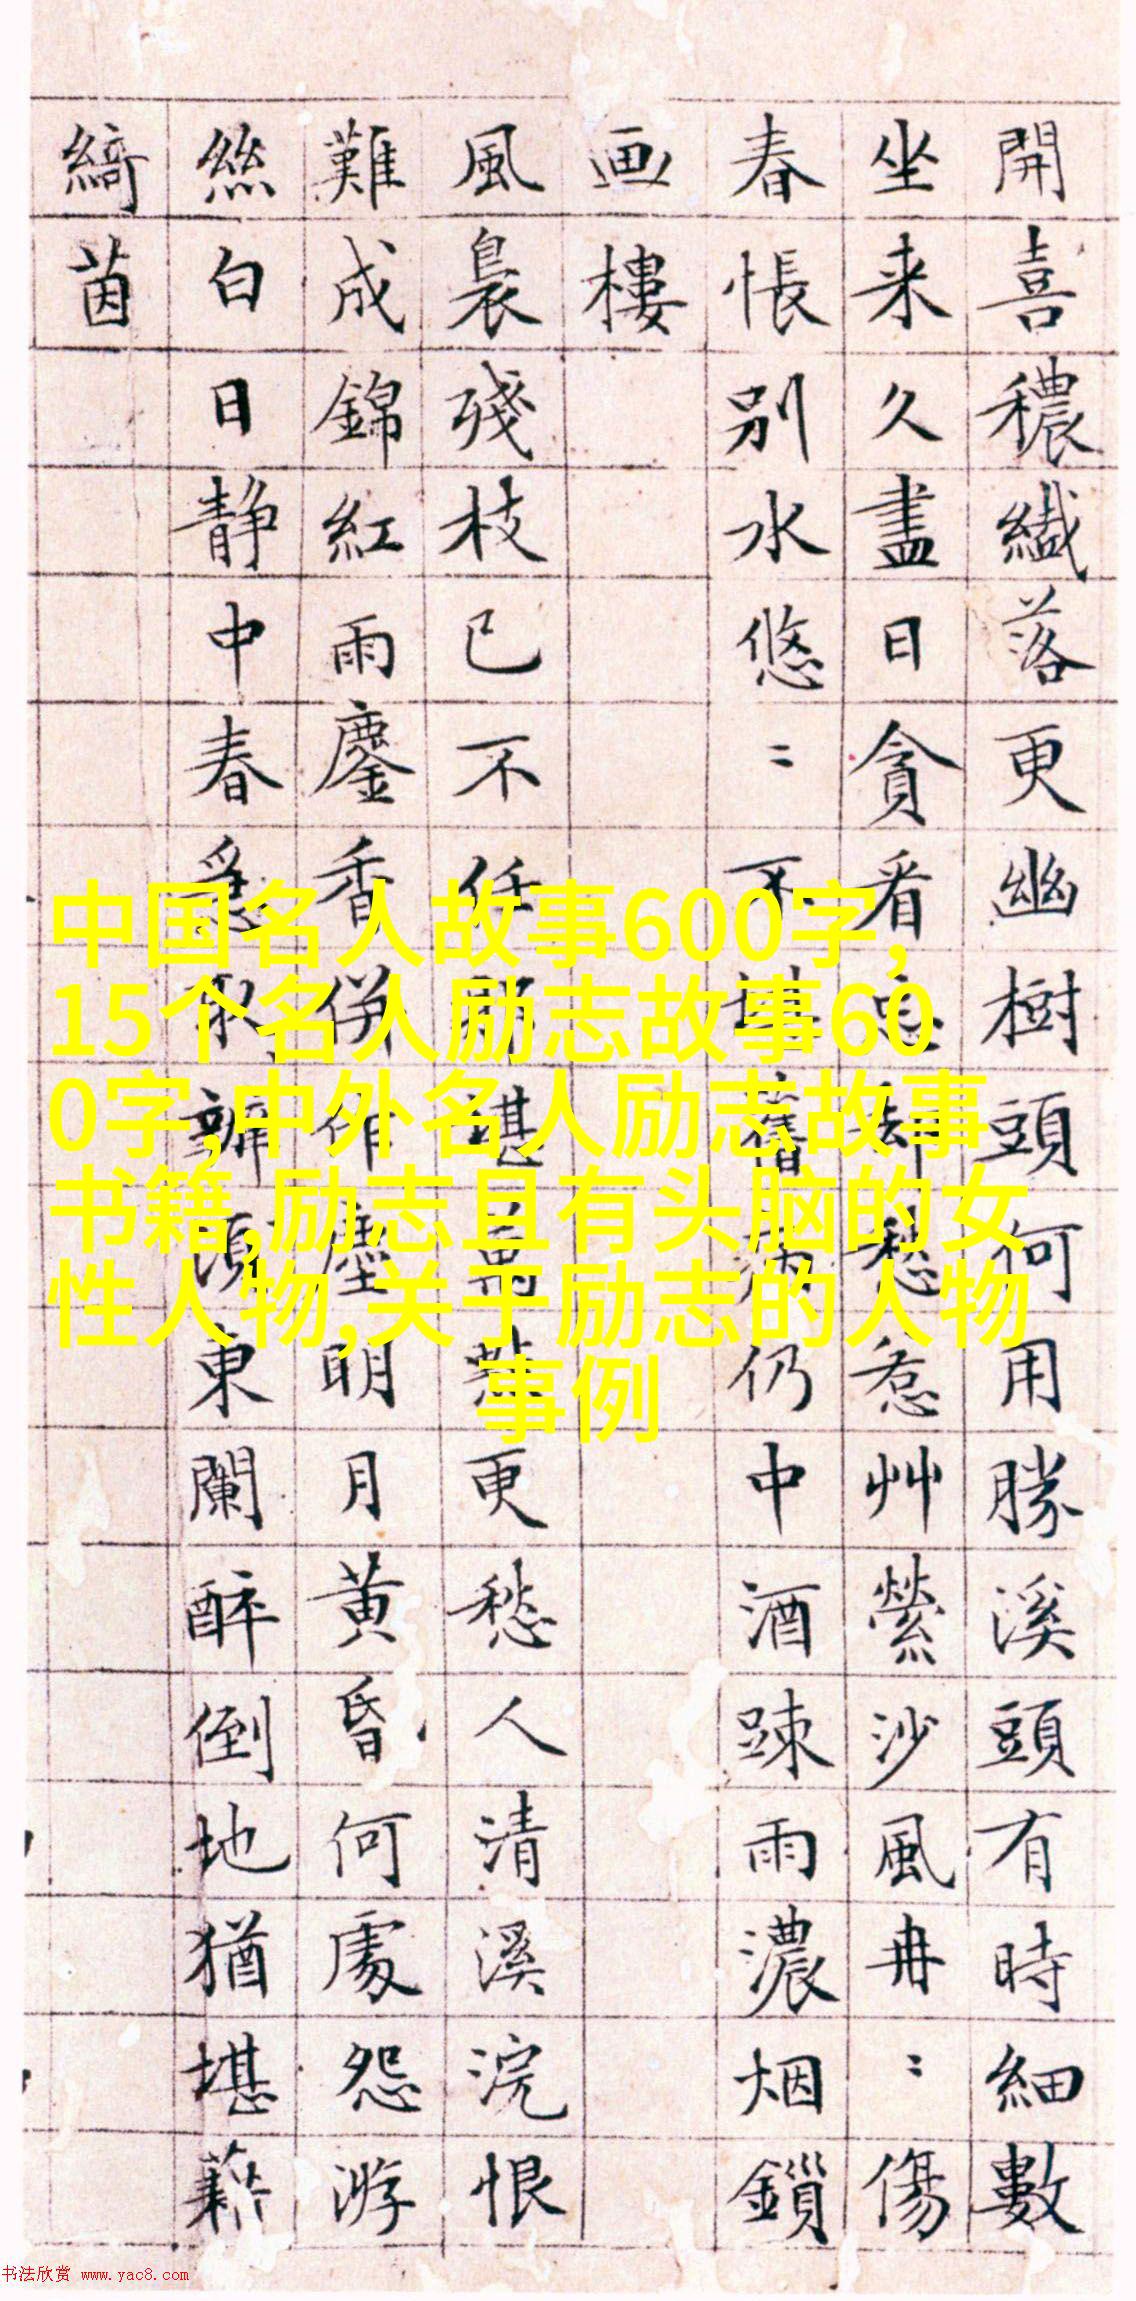 開喜穠纎落更幽樹頭何用勝溪頭有時細數
坐来久盡日貪看忘却愁惹艸縈沙風冉〻傷
春悵别水悠〻不堪舊病仍中酒踈雨濃烟鎖
画樓
風裊殘枝已不任那堪萬點更愁人清溪浣恨
難成錦紅雨鏖香併作塵明月黄昏何處怨游
絲白日静中春急取辦須東闌醉倒地猶堪藉
綺茵
中国名人故事600字,
15个名人励志故事60
0字,中外名人励志故事
书籍,励志且有头脑的女
性人物,关于励志的人物
事例
书法欣赏 www.yac8.com